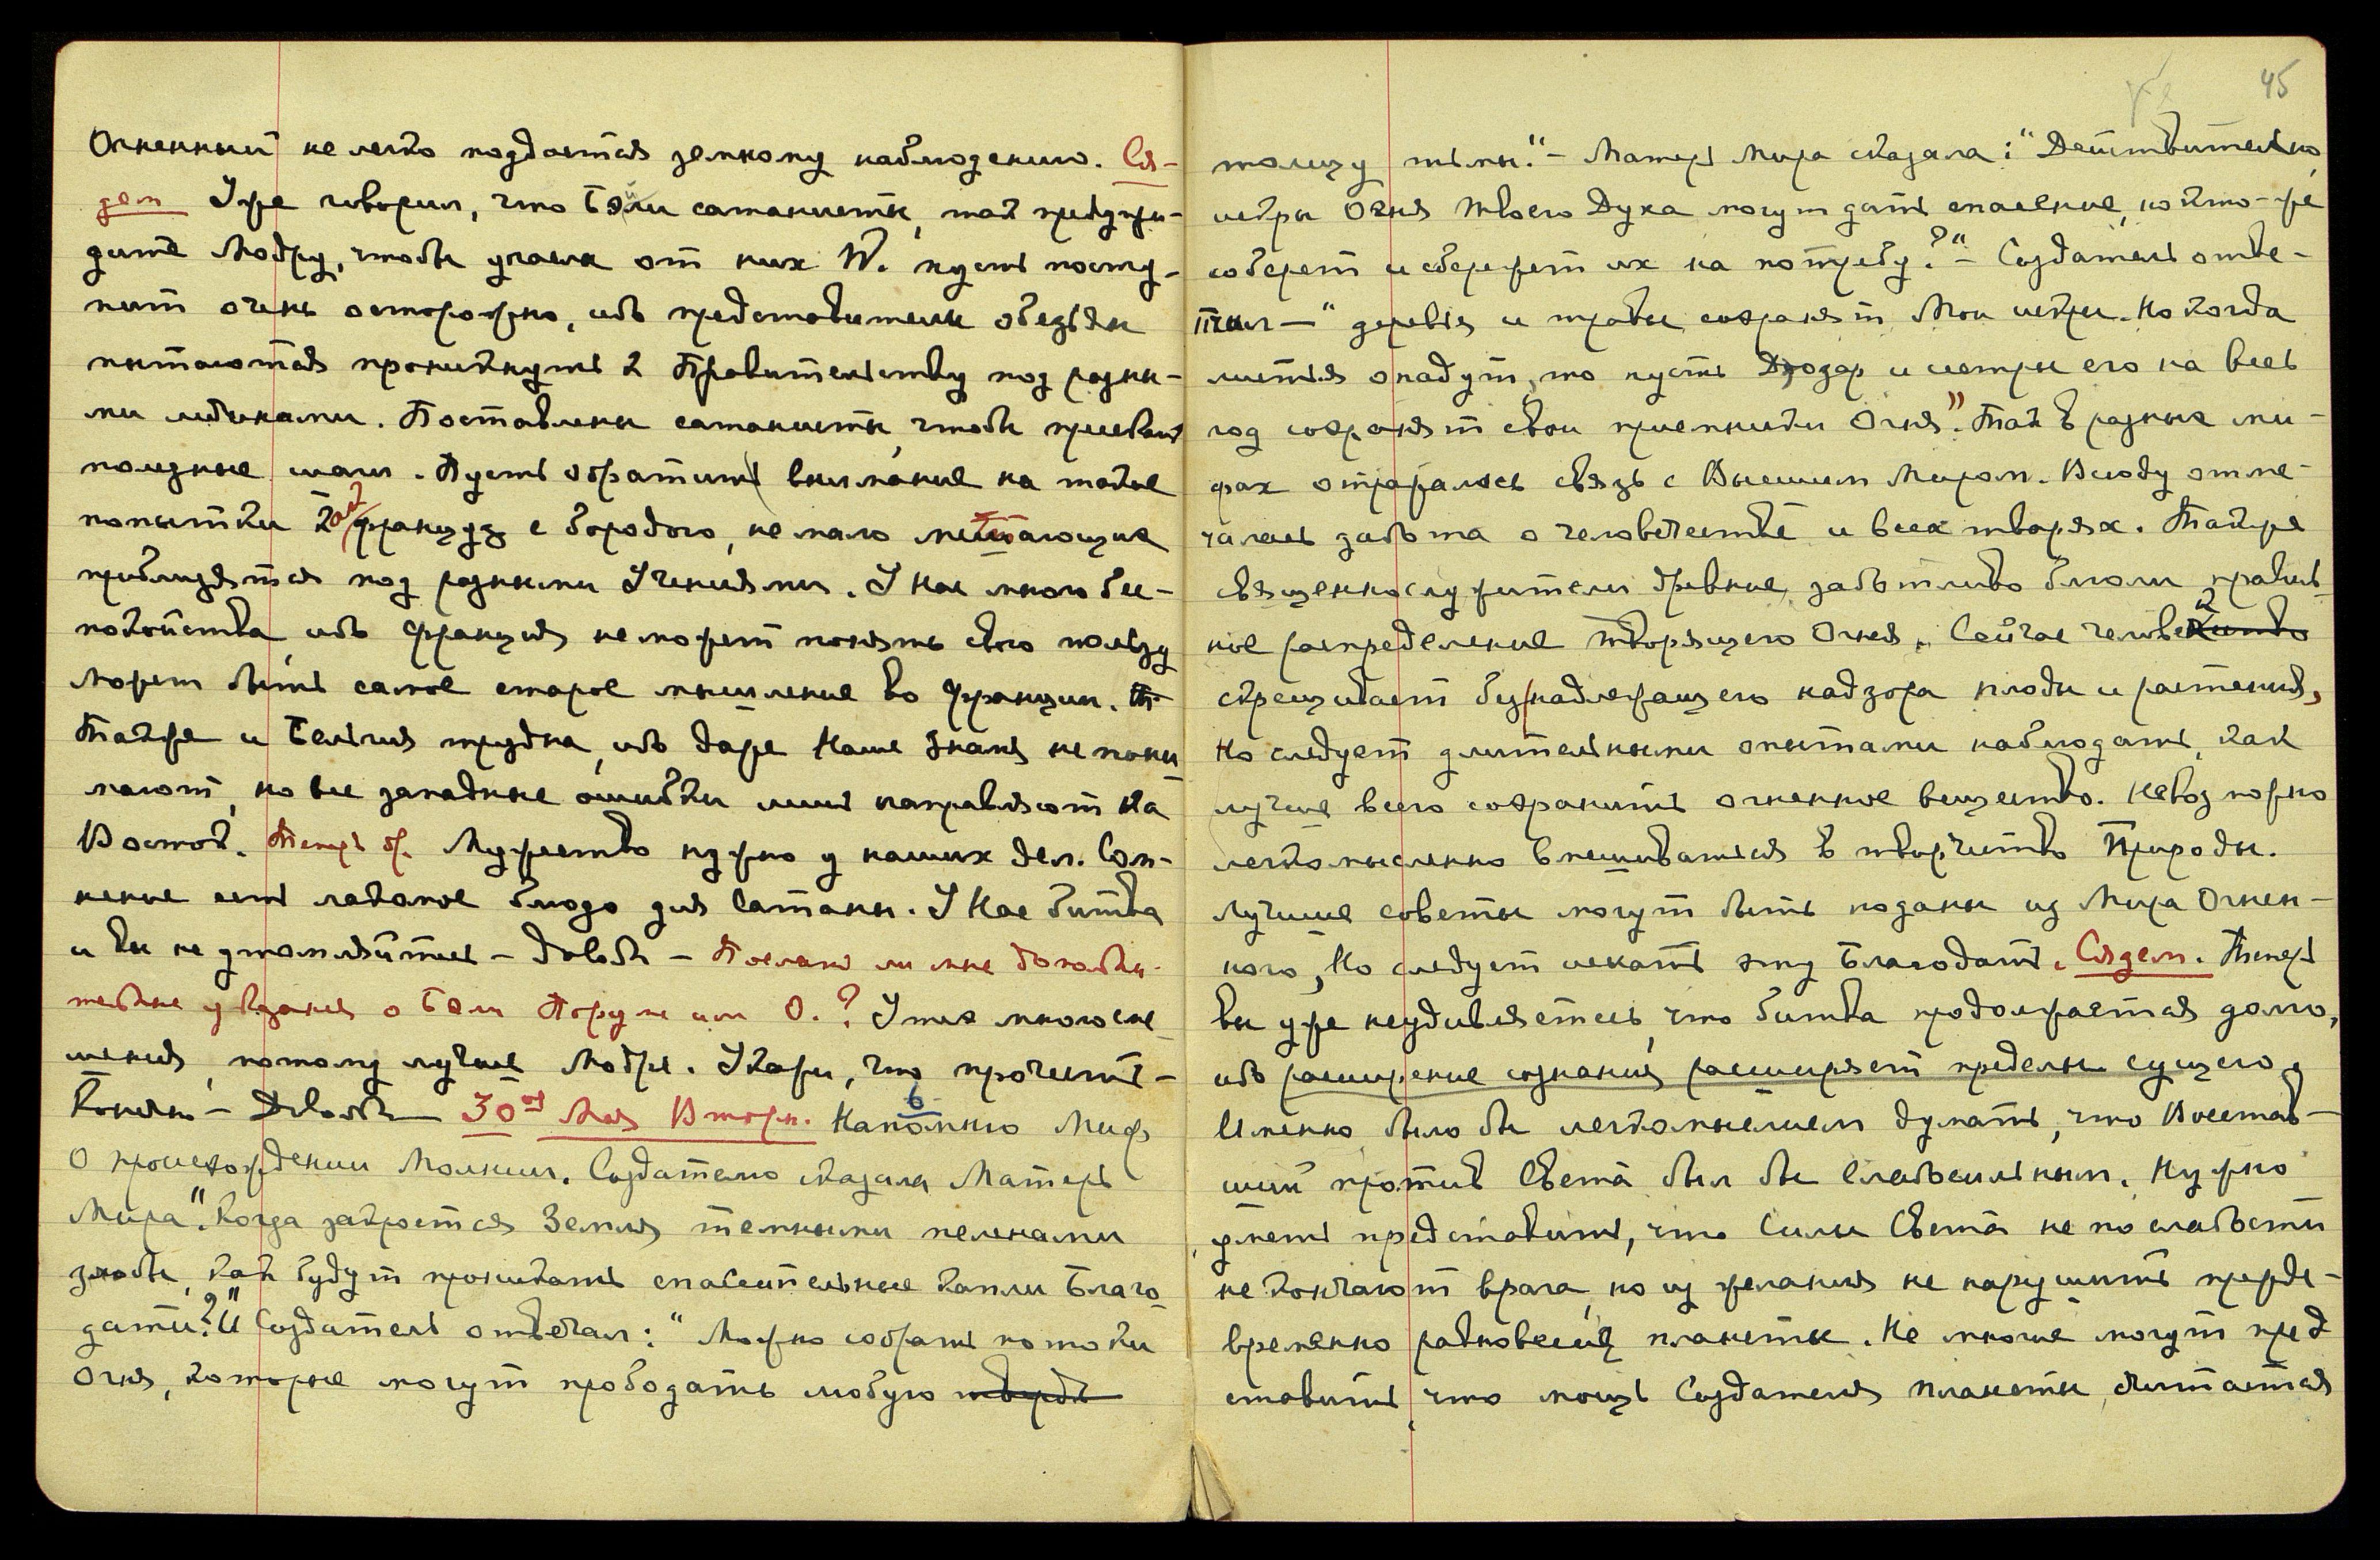 Огненный не легко поддается земному наблюдению. Ся-
дем Уже говорил, что Бэли сатанисты, так предупре-
дите Модру, чтобы узнала от них W. пусть посту-
пит очень осторожно, ибо представители обезьян
пытаются проникнуть к Правительству под разны-
ми личинами. Поставлены сатанисты, чтобы пресекать
полезные шаги. Пусть обратит внимание на такие
попытки как француз с бородою, не мало мешающие
приблизятся под разными Учениями. У Нас много бес-
покойства, ибо Франция не может понять свою пользу
Может быть самое старое мышление во Франции.
Также и Бельгия трудна, ибо даже Наше Знамя не пони
мают, но все западные ошибки лишь направляют на
Восток. Теперь бр. Мужество нужно у наших дел. Сом-
нение есть лакомое блюдо для Сатаны. У Нас битва
и вы не утомляйтесь – довольно – Послать ли мне
указания о Бэли Поруме или О.? У них много сно
шения, потому лучше Модре. Укажи, что прочесть –
Конечно – Довольно 30ое Мая Вторн. Напомню Миф
6
О происхождении Молнии. Создателю сказала Матерь
Мира": Когда закроется Земля темными пеленами
злобы, как будут проникать спасительные капли Благо
дати?" И Создатель отвечал: " Можно собрать потоки
Огня, которые могут прободать любую твердь
45
толщу тьмы". – Матерь Мира сказала: " Действительно,
искры Огня Твоего Духа могут дать спасение, но кто-же
соберет и сбережет их на потребу?" – Создатель отве-
тил – " деревья и травы сохранят Мои искры. Но когда
листья опадут, то пусть Деодар и сестры его на весь
год сохранят свои приемники Огня". Так в разных ми-
фах отражалась связь с Высшим Миром. Всюду отме-
чалась забота о человечестве и всех тварях. Также
священнослужители древние заботливо блюли правиль
ное распределение творящего Огня. Сейчас человек
скрещивает без надлежащего надзора плоды и растения,
Но следует длительными опытами наблюдать, как
лучше всего сохранить огненное вещество. Невозможно
легкомысленно вмешиваться в творчество Природы.
Лучшие советы могут быть поданы из Мира Огнен-
ного, Но следует искать эту Благодать. Сядем. Теперь
вы уже не удивляетесь, что битва продолжается долго,
ибо расширение сознания расширяет пределы сущего.
Именно было бы легкомыслием думать, что Восстав-
ший против Света был бы слабосильным. Нужно
уметь представить, что Силы Света не по слабости
не кончают врага, но из желания не нарушить прежде-
временно равновесие планеты. Не многие могут пред
ставить, что мощь Создателя планеты, считается